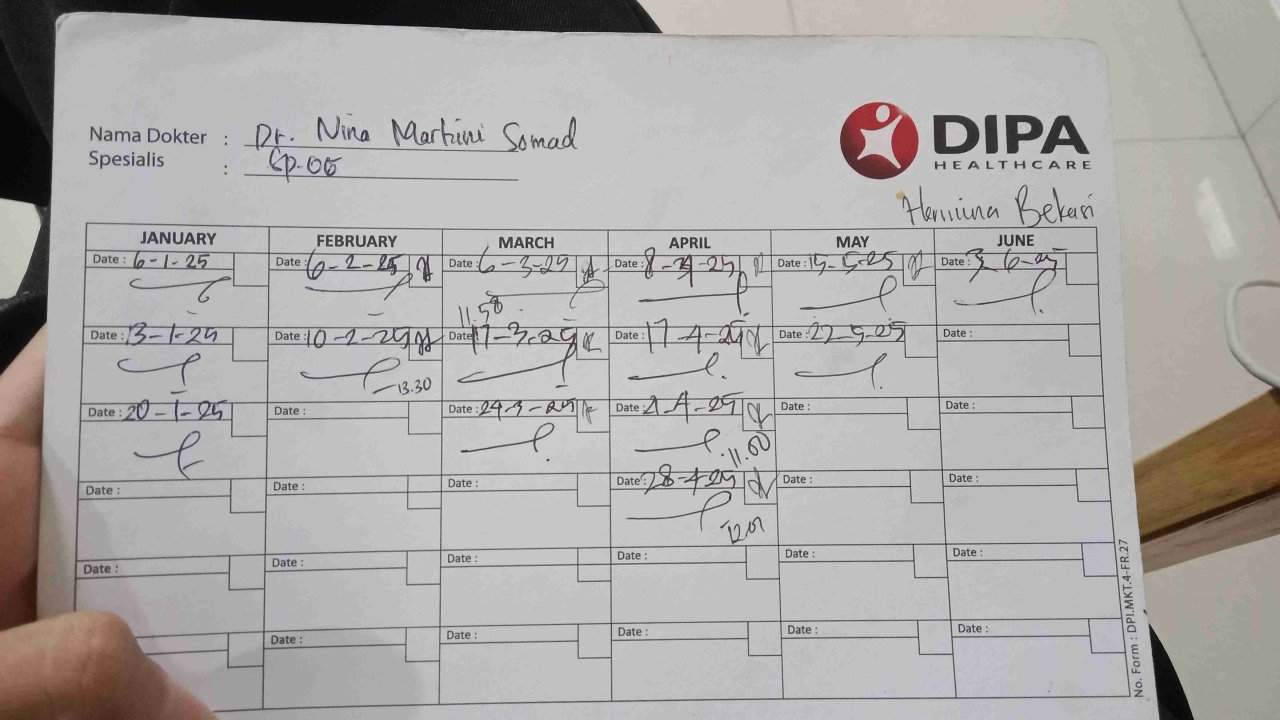 Nama Dokter : Dr. Nina Martini Somad
Spesialis : Sp.OG
DIPA
HEALTHCARE
Hermina Bekasi
JANUARY FEBRUARY MARCH APRIL MAY JUNE
Date : 6-1-25 Date : 6-2-25 Date : 6-3-25 Date : 8-4-25 Date : 15-5-25 Date : 3-6-25
11.58
Date : 13-1-25 Date : 10-2-25 Date : 17-3-25 Date : 17-4-25 Date : 22-5-25 Date :
13.30
Date : 20-1-25 Date : Date : 24-3-25 Date : Date : Date :
11.00
Date : Date : Date : Date : 28-4-25 Date : Date :
Date : Date : Date : Date : Date : Date :
Date : Date : Date : Date : Date :
No. Form : DPI.MKT.4-FR.27